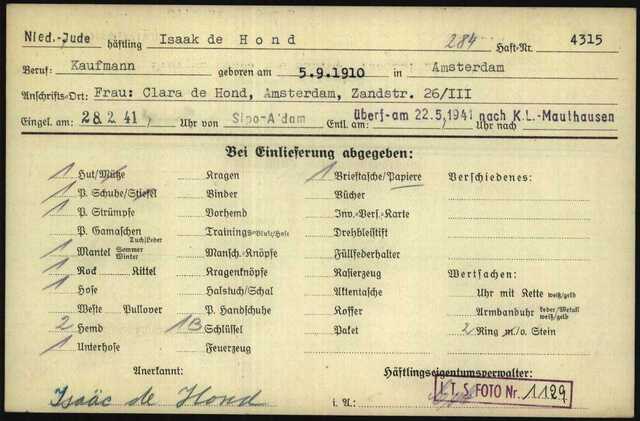 Nied.-Jude häftling Isaak de Hond 284 Haft-Nr. 4315
Beruf: Kaufmann geboren am 5.9.1910 in Amsterdam
Anschrifts-Ort: Frau: Clara de Hond, Amsterdam, Zandstr. 26/III
Eingel. am: 28.2.41 Uhr von Sipo-A'dam Entl. am: überf. am 22.5.1941 nach K.L.-Mauthausen Uhr nach
Bei Einlieferung abgegeben:
1 Hut/Mütze Kragen 1 Brieftasche/Papiere Verschiedenes:
1 P. Schuhe/Stiefel Binder Bücher
1 P. Strümpfe Vorhemd Inv.-Vers.-Karte
P. Gamaschen Tuch/Leder Trainings-Bluse/Hose Drehbleistift
1 Mantel Sommer Winter Mansch.-Knöpfe Füllfederhalter
1 Rock Kittel Kragenknöpfe Rasierzeug Wertsachen:
1 Hose Halstuch/Schal Aktentasche Uhr mit Kette weiß/gelb
Weste Pullover P. Handschuhe Koffer Armbanduhr Leder/Metall weiß/gelb
2 Hemd 1B Schlüssel Paket 2 Ring m./o. Stein
1 Unterhose Feuerzeug
Anerkannt: Häftlingseigentumsverwalter:
Isaäc de Hond i. A.:
I.T.S. FOTO Nr. 1129